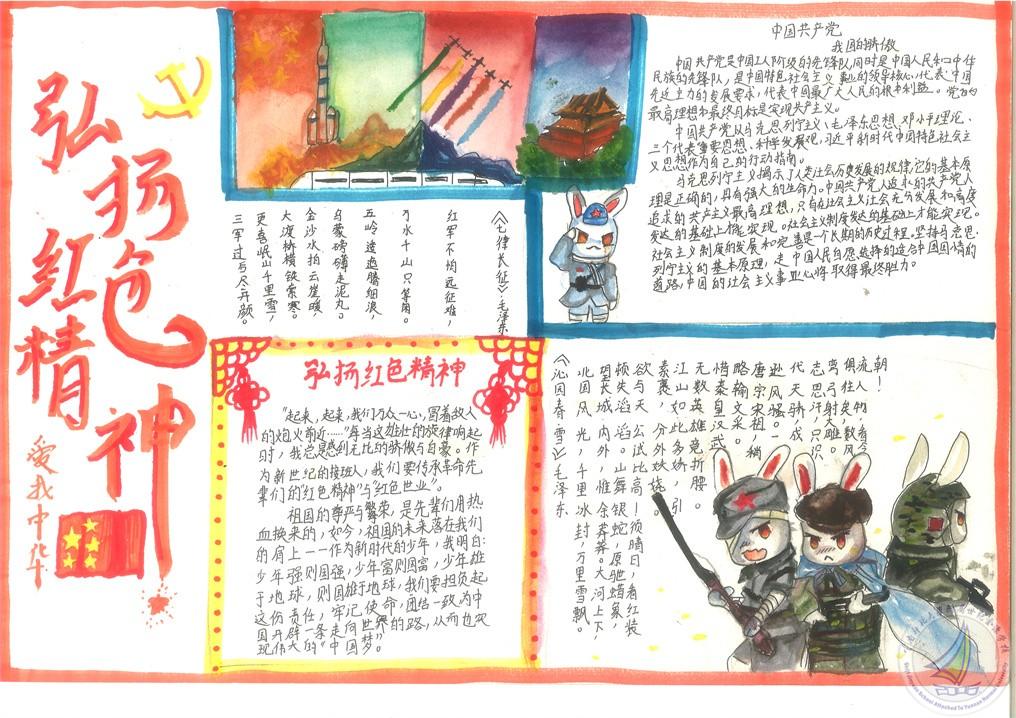 弘扬
红色
精神
爱我中华
《七律长征》毛泽东
红军不怕远征难，
万水千山只等闲。
五岭逶迤腾细浪，
乌蒙磅礴走泥丸。
金沙水拍云崖暖，
大渡桥横铁索寒。
更喜岷山千里雪，
三军过后尽开颜。
中国共产党
我国的骄傲
中国共产党是中国工人阶级的先锋队，同时是中国人民和中华
民族的先锋队，是中国特色社会主义事业的领导核心，代表中国
先进生力的发展要求，代表中国最广大人民的根本利益。党的
最高理想和最终目标是实现共产主义。
中国共产党以马克思列宁主义、毛泽东思想、邓小平理论、
三个代表重要思想、科学发展观，习近平新时代中国特色社会主
义思想作为自己的行动指南。
马克思列宁主义揭示了人类社会历史发展的规律，它的基本原
理是正确的，具有强大的生命力。中国共产党人追求的共产党人
追求的共产主义最高理想，只有在社会主义社会充分发展和高度
发达的基础上才能实现。社会主义制度发达的基础上才能实现。
社会主义制度的发展和完善是一个长期的历史过程。坚持马克思
列宁主义的基本原理，走中国人民自愿选择的适合中国国情的
道路，中国的社会主义事业必将取得最终胜力。
弘扬红色精神
“起来，起来，我们万众一心，冒着敌人
的炮火前进……”每当这雄壮的旋律响起
时，我总是感到无比的骄傲与自豪。作
为新世纪的接班人，我们要传承革命先
辈们的“红色精神”与“红色世业”。
祖国的尊严与繁荣，是先辈们用热
血换来的，如今，祖国的未来落在我们
的肩上——作为新时代的少年，我明白：
少年强则国强，少年富则国富，少年雄
于地球，则国雄于地球，我们要担负起
这份责任，牢记使命，团结一致为中
国开辟一条走向世界的路，从而也实
现伟大的“中国梦”。
《沁园春·雪》毛泽东
北国风光，千里冰封，万里雪飘。
望长城内外，惟余莽莽。大河上下，
顿失滔滔。山舞银蛇，原驰蜡象，
欲与天公试比高！须晴日，看红装
素裹，分外妖娆。
江山如此多娇，引
无数英雄竞折腰。
惜秦皇汉武，
略输文采。
唐宗宋祖，稍
逊风骚。一
代天骄，成
吉思汗，只识
弯弓射大雕。
俱往矣，数
流人物看今
朝！